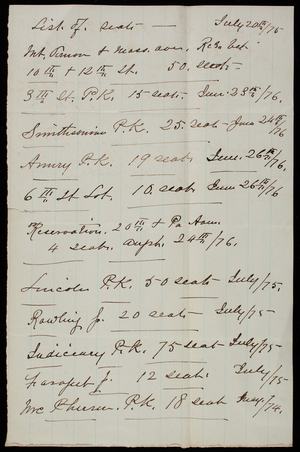 List of seats — July 20th/75
Mt. Vernon & Mass. ave. Res. bet.
10th & 12th St. 50. seats
3rd St. P.K. 15 seats. June. 23rd/76.
Smithsonian P.K. 25. seats June 24th/76
Armory P.K. 19 seats June. 26th/76
6th St Lot. 10. seats June 26th/76
Reservation. 20th & Pa Ave.
4 seats. Augst. 24th/76.
Lincoln P.K. 50 seats July/75.
Rawlins Sq. 20 seats July/75
Judiciary P.K. 75 seats July/75
Farragut Sq. 12 seats July/75
McPherson. P.K. 18 seats /74.